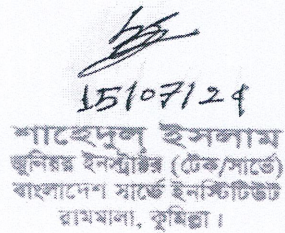 15/07/24
শাহেদুল ইসলাম
জুনিয়র ইনস্ট্রাক্টর (টেক/সার্ভে)
বাংলাদেশ সার্ভে ইনস্টিটিউট
রামমালা, কুমিল্লা।